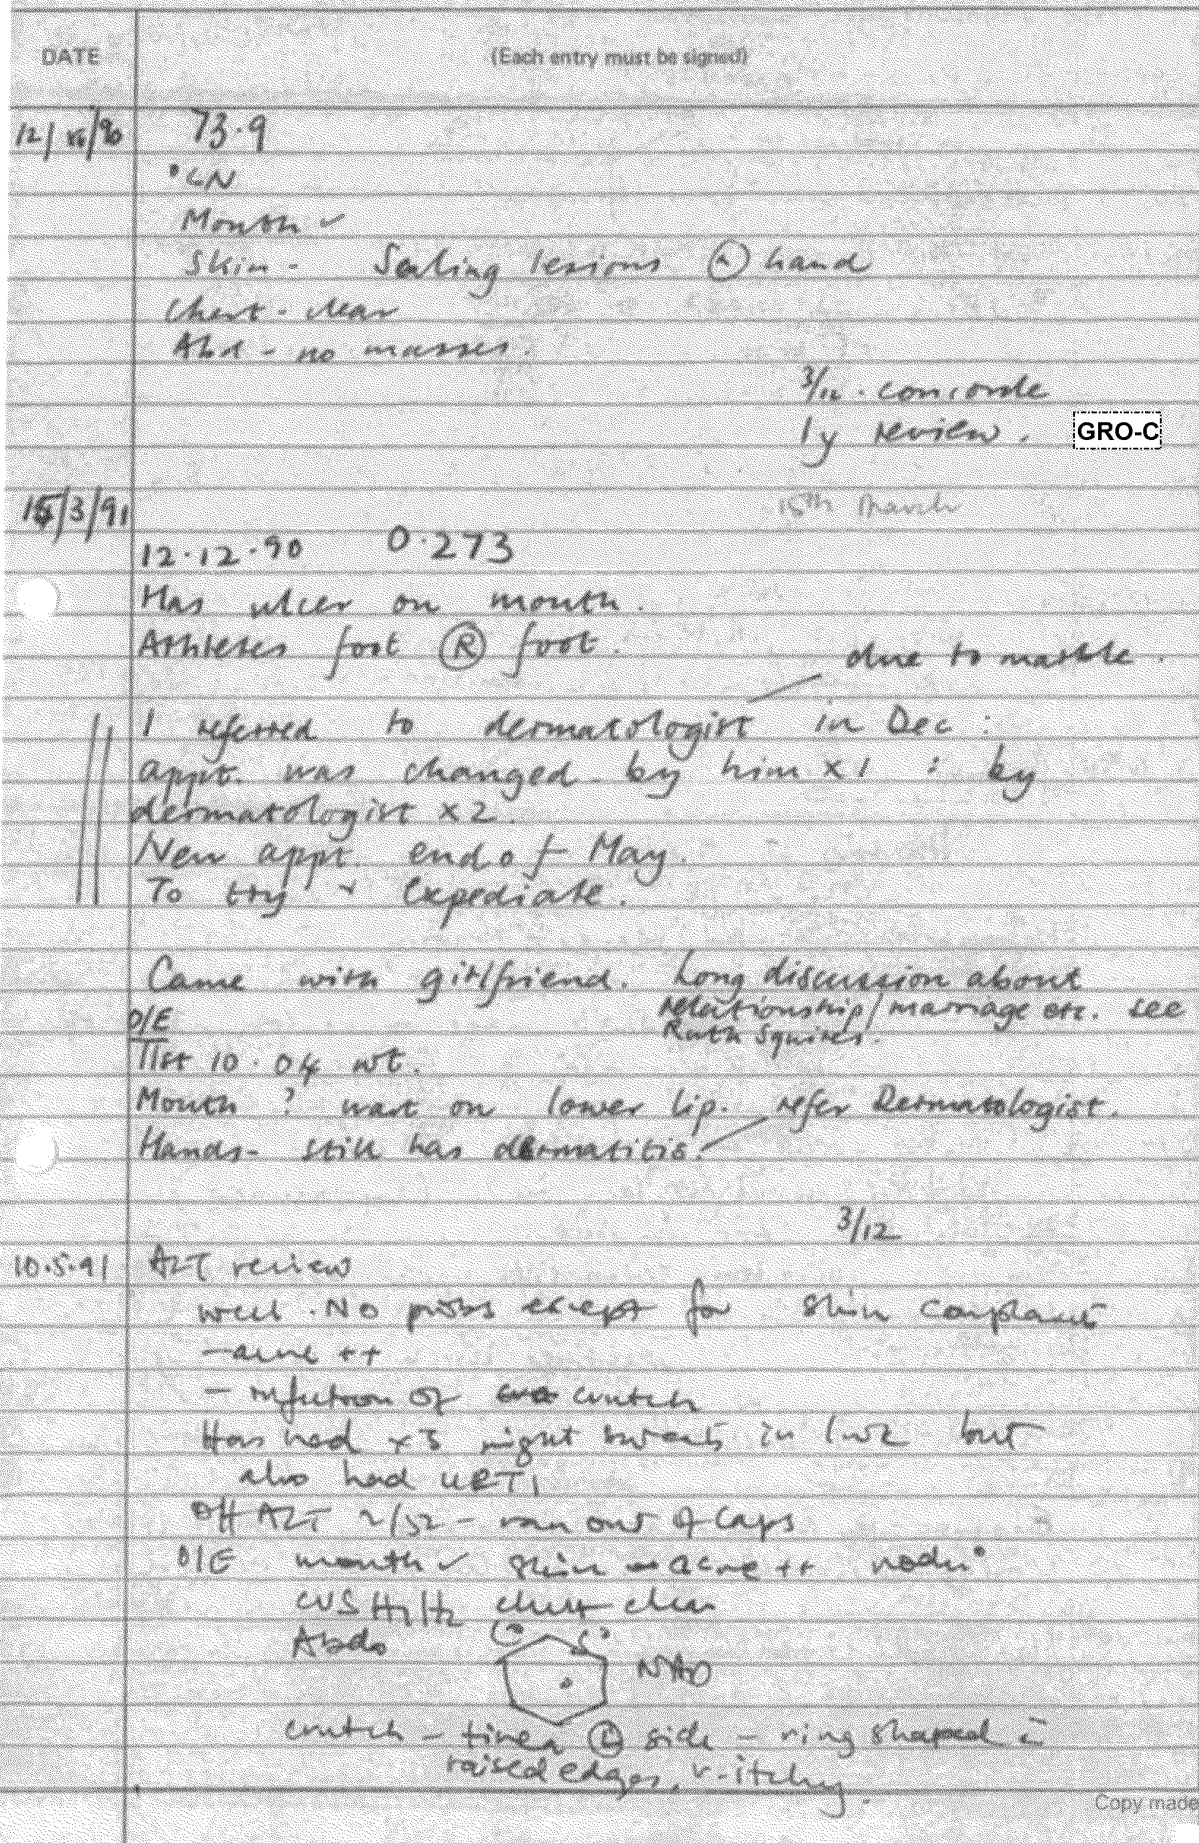 DATE (Each entry must be signed)
12/ /90 73.9
°LN
Mouth ✓
Skin - Scaling lesions hand
Chest - clear
Abd - no masses.
3/12 . concorde
1y review. GRO-C
15/3/91 15th March
12.12.90 0.273
Has ulcer on mouth.
Athletes foot Ⓡ foot.
due to
I referred to dermatologist in Dec :
appt. was changed by him x1 : by
dermatologist x2.
New appt. end of May.
To try + expediate.
Came with girlfriend. Long discussion about
relationship/marriage etc. see
Ruth Squires.
O/E
11st 10.04 wt.
Mouth ? wart on lower lip. refer Dermatologist.
Hands - still has dermatitis.
3/12
10.5.91 AZT review
well. No probs except for skin complaints
- acne ++
- infection of crutch
Has had x3 night sweats in 1wk but
also had URTI
DH AZT 2/52 - ran out of caps
O/E mouth ✓ skin - acne ++ nodes°
CVS H1/H2 chest clear
Abdo NAD
crutch - tinea Ⓛ side - ring shaped c̄
raised edges, v. itchy.
Copy made